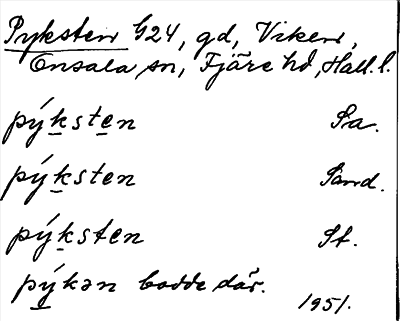 Pyksten G24, gd, Viken,
Onsala sn, Fjäre hd, Hall. l.
pýksten Sa.
pýksten Sand.
pýksten St.
pýkən bodde där.
1951.